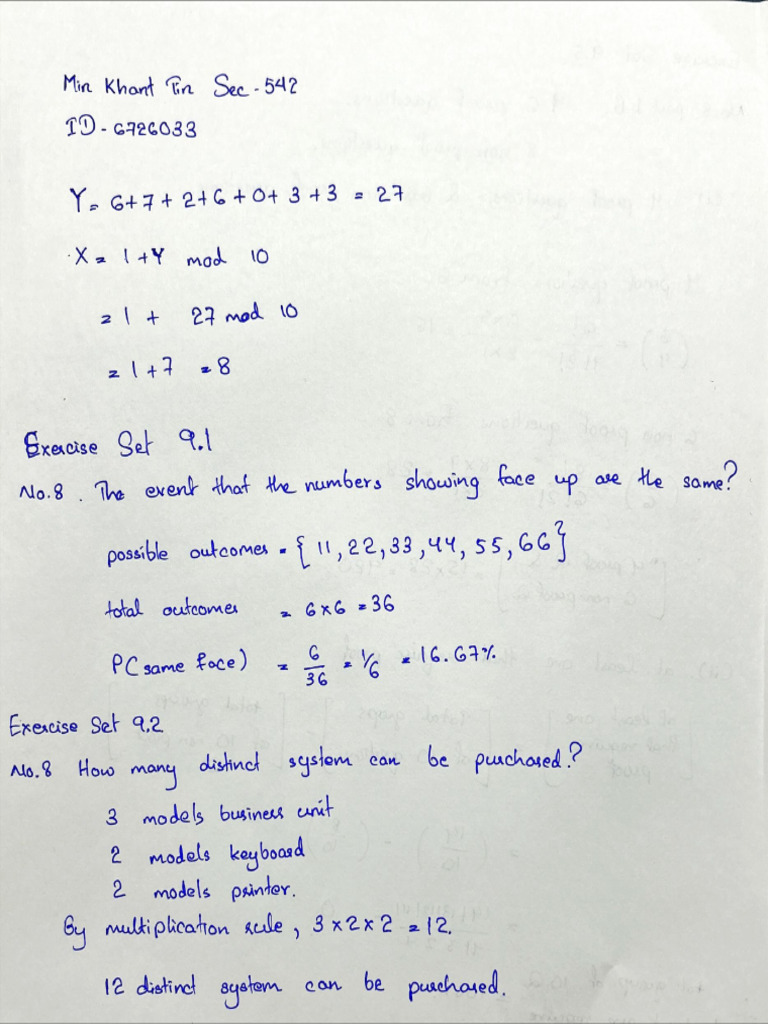 Min Khant Tin Sec-542
ID-6726033
Y= 6+7+2+6+0+3+3 = 27
X= 1+Y mod 10
=1 + 27 mod 10
=1+7 =8
Exercise Set 9.1
No.8. The event that the numbers showing face up are the same?
possible outcomes = {11,22,33,44,55,66}
total outcomes = 6x6 =36
P(same face) = 6/36 = 1/6 = 16.67%
Exercise Set 9.2
No.8 How many distinct system can be purchased?
3 models business unit
2 models keyboard
2 models printer.
By multiplication rule, 3x2x2 =12.
12 distinct system can be purchased.